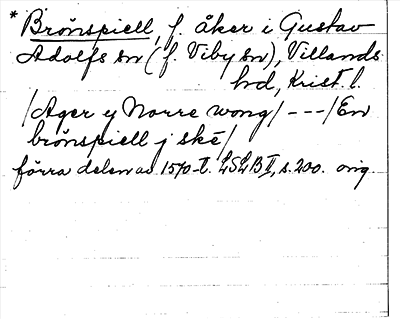 * Brönspiell, f. åker i Gustav
Adolfs sn (f. Viby sn), Villands
hd, Krist. l.
/Ager y Norre wong/ - - - /En
brönspiell j ske/
förra delen av 1570-t. LSLB II, s. 200. orig.